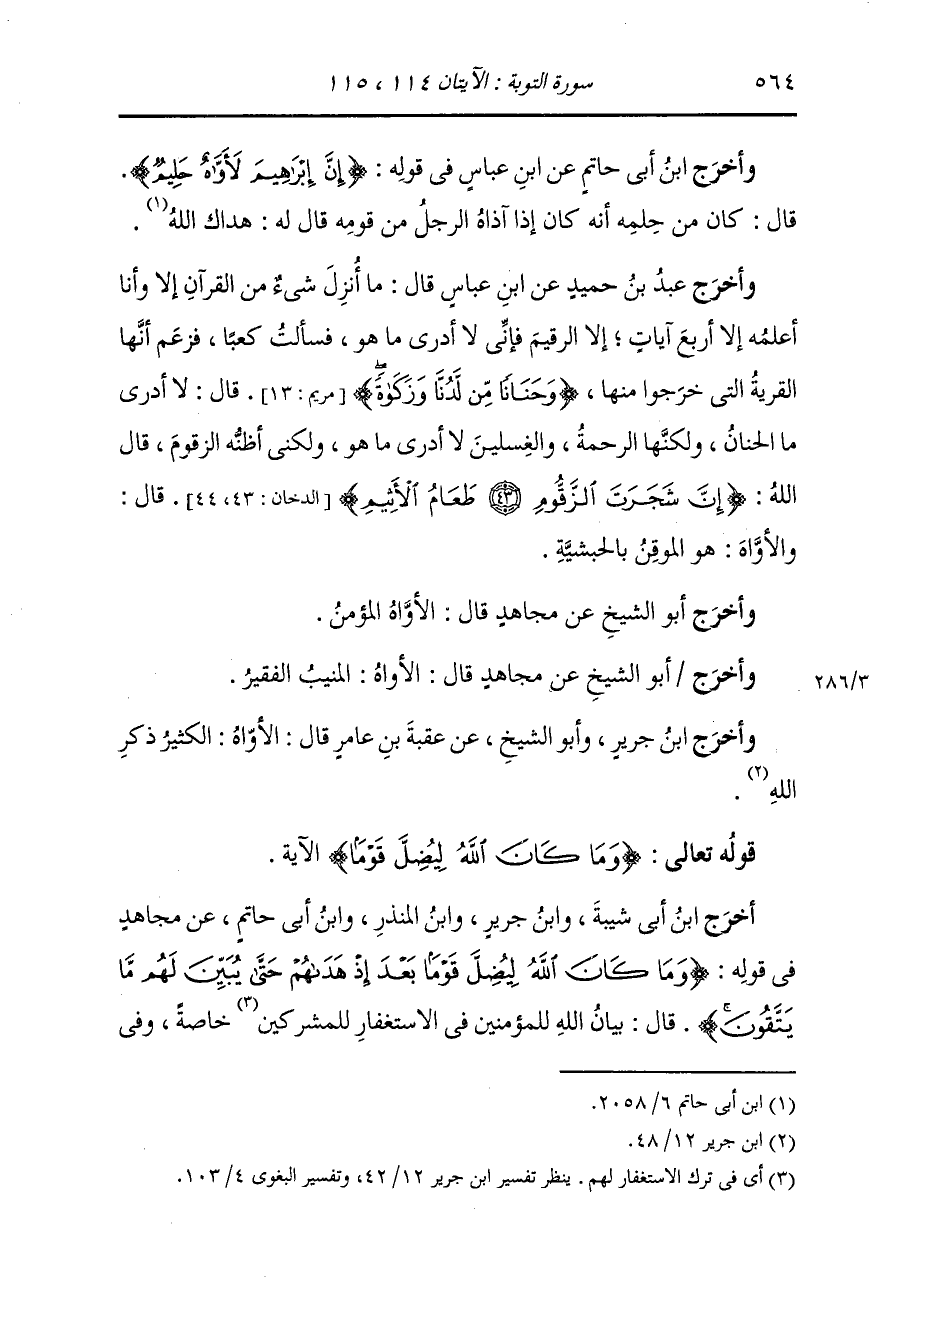 ٥٦٤ سورة التوبة : الآيتان ١١٤ ، ١١٥
وأخرَج ابنُ أبى حاتمٍ عن ابنِ عباسٍ فى قولِه : ﴿إِنَّ إِبْرَٰهِيمَ لَأَوَّٰهٌ حَلِيمٌ﴾ .
قال : كان من حِلمِه أنه كان إذا آذاهُ الرجلُ من قومِه قال له : هداك اللهُ(١) .
وأخرَج عبدُ بنُ حميدٍ عن ابنِ عباسٍ قال : ما أُنزِلَ شىءٌ من القرآنِ إلا وأنا
أعلمُه إلا أربعَ آياتٍ ؛ إلا الرقيمَ فإنِّى لا أدرى ما هو ، فسألتُ كعبًا ، فزعَم أنَّها
القريةُ التى خرَجوا منها ، ﴿وَحَنَانًا مِّن لَّدُنَّا وَزَكَوٰةً﴾ [مريم : ١٣] . قال : لا أدرى
ما الحنانُ ، ولكنَّها الرحمةُ ، والغِسلينَ لا أدرى ما هو ، ولكنى أظنُّه الزقومَ ، قال
اللهُ : ﴿إِنَّ شَجَرَتَ ٱلزَّقُّومِ ۝٤٣ طَعَامُ ٱلْأَثِيمِ﴾ [الدخان : ٤٣، ٤٤] . قال :
والأوَّاهَ : هو الموقِنُ بالحبشيَّةِ .
وأخرَج أبو الشيخِ عن مجاهدٍ قال : الأوَّاهُ المؤمنُ .
وأخرَج / أبو الشيخِ عن مجاهدٍ قال : الأواهُ : المنيبُ الفقيرُ . ٢٨٦/٣
وأخرَج ابنُ جريرٍ ، وأبو الشيخِ ، عن عقبةَ بنِ عامرٍ قال : الأوّاهُ : الكثيرُ ذكرِ
اللهِ(٢) .
قولُه تعالى : ﴿وَمَا كَانَ ٱللَّهُ لِيُضِلَّ قَوْمًا﴾ الآية .
أخرَج ابنُ أبى شيبةَ ، وابنُ جريرٍ ، وابنُ المنذرِ ، وابنُ أبى حاتمٍ ، عن مجاهدٍ
فى قولِه : ﴿وَمَا كَانَ ٱللَّهُ لِيُضِلَّ قَوْمًا بَعْدَ إِذْ هَدَىٰهُمْ حَتَّىٰ يُبَيِّنَ لَهُم مَّا
يَتَّقُونَۚ﴾ . قال : بيانُ اللهِ للمؤمنين فى الاستغفارِ للمشركين(٣) خاصةً ، وفى
(١) ابن أبى حاتم ٦/ ٢٠٥٨.
(٢) ابن جرير ١٢/ ٤٨.
(٣) أى فى ترك الاستغفار لهم . ينظر تفسير ابن جرير ١٢/ ٤٢، وتفسير البغوى ٤/ ١٠٣.